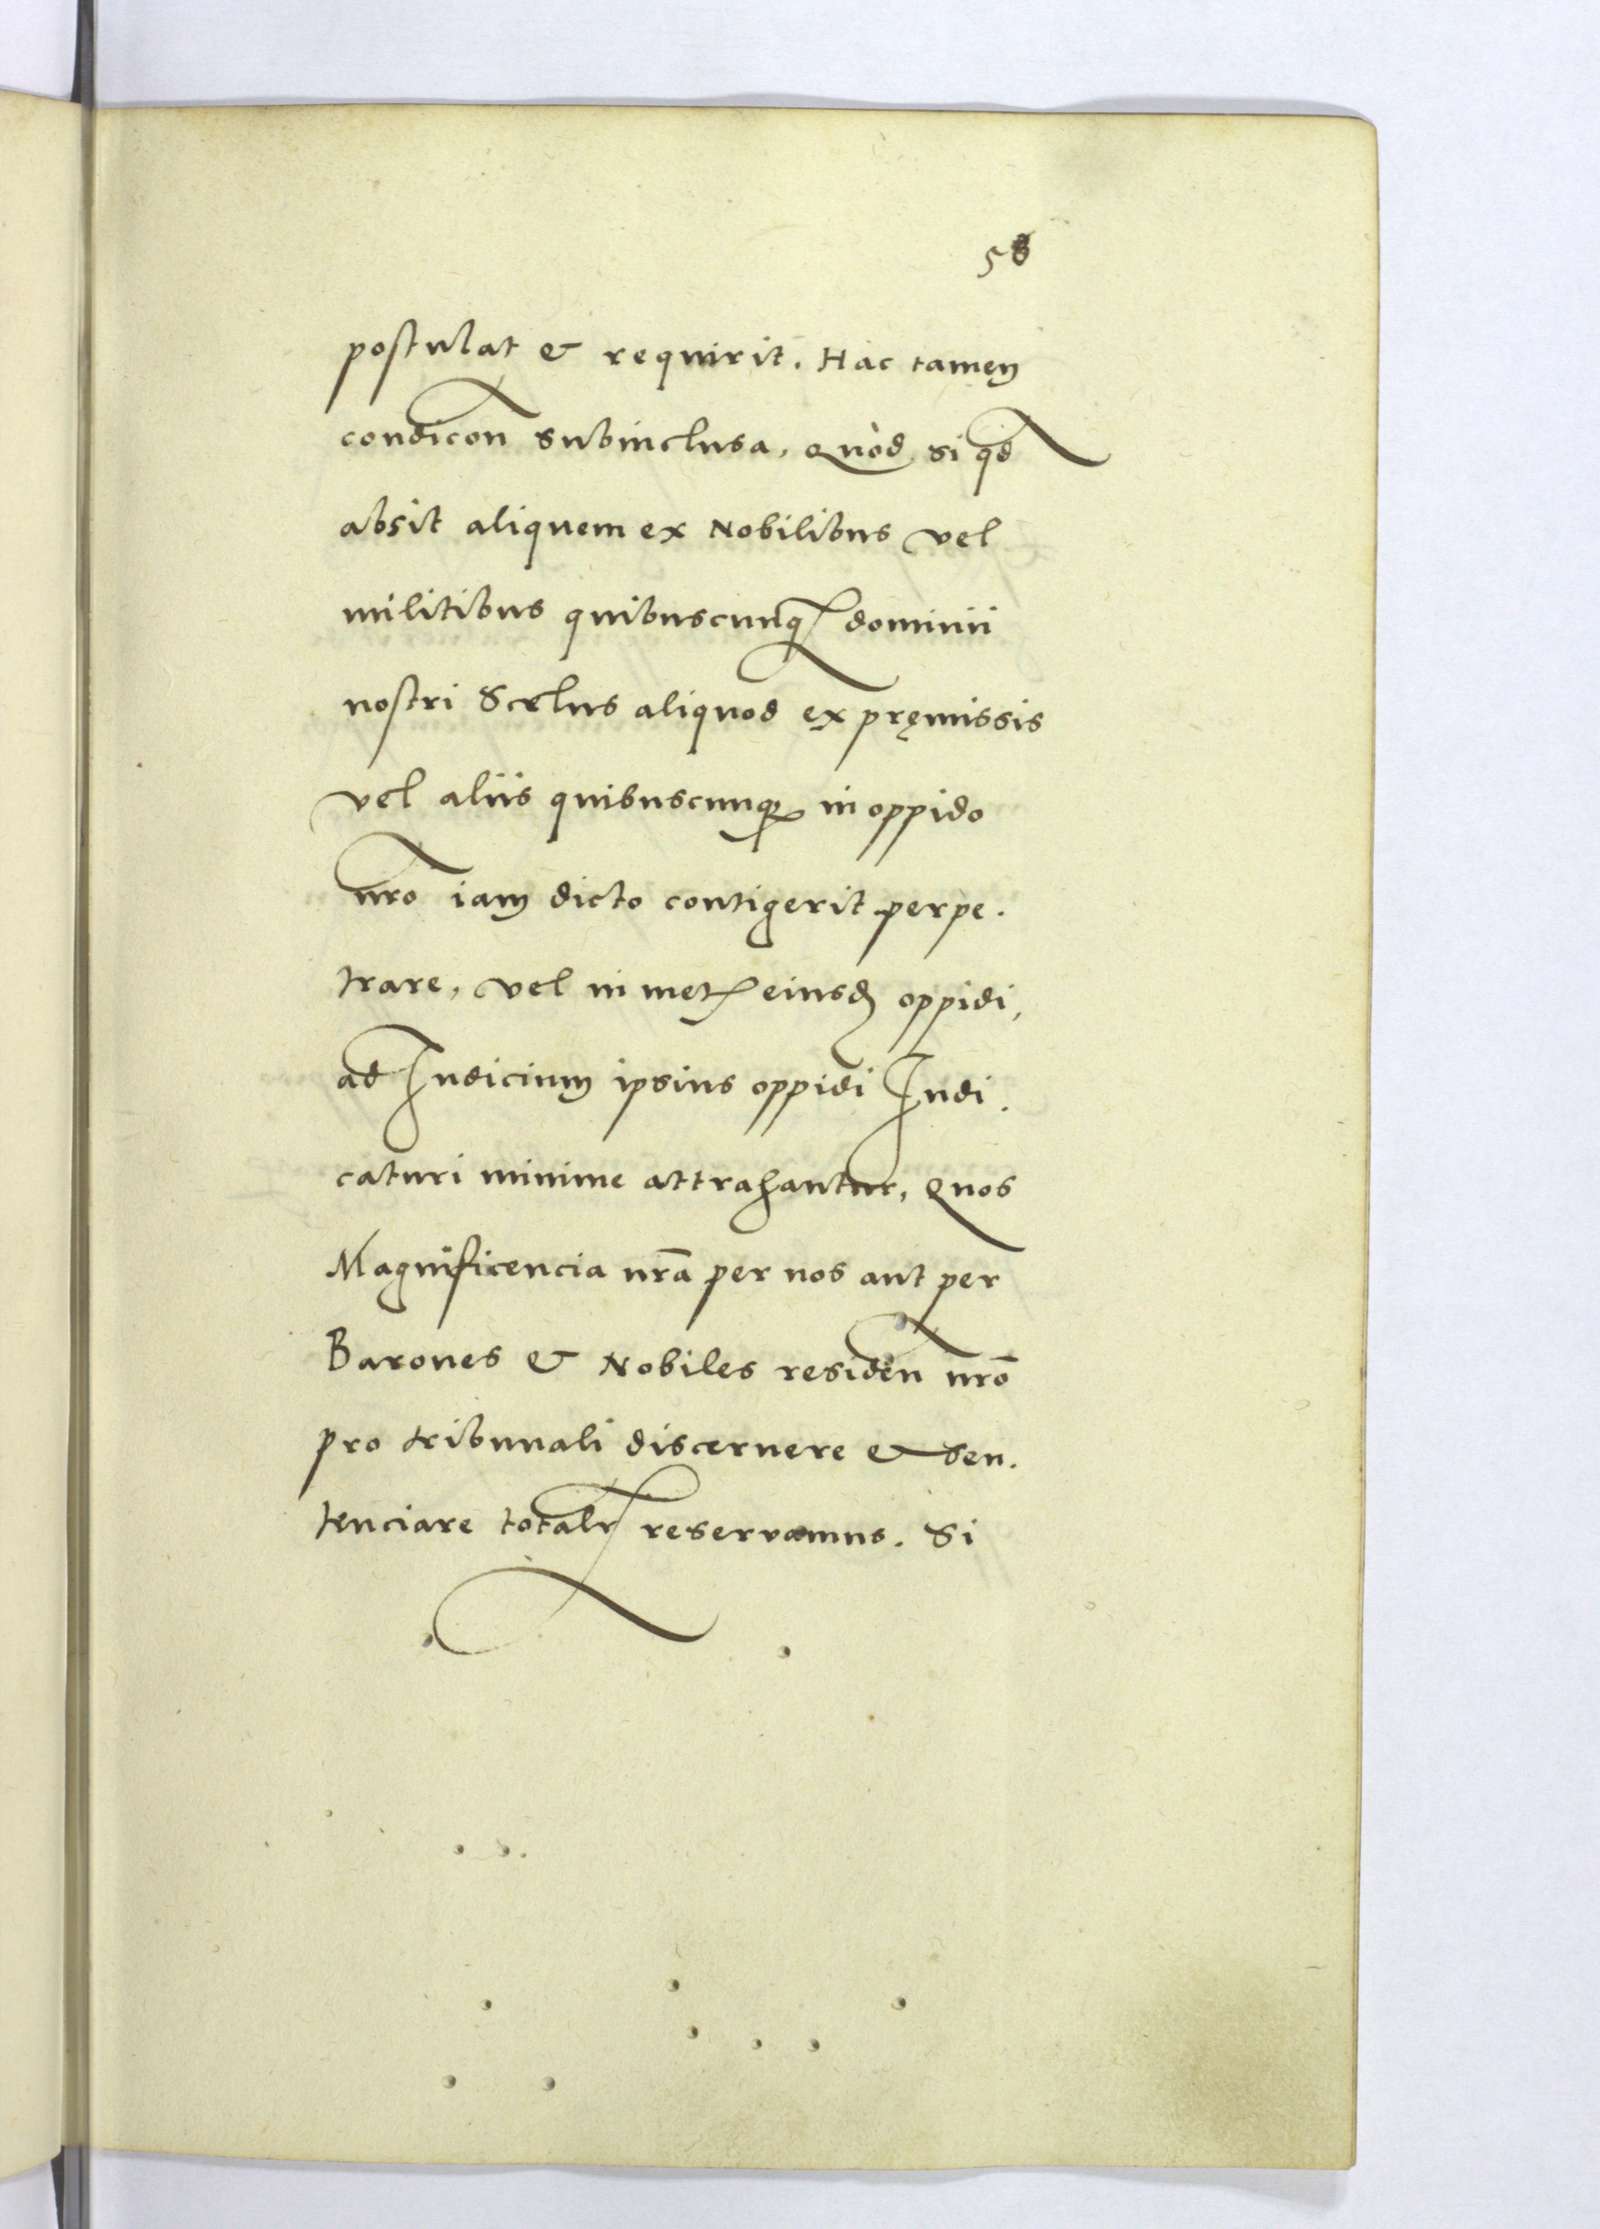 58
postulat & requirit. Hac tamen
condicon subinclusa, Quòd si qd
absit aliquem ex Nobilibus vel
militibus quibuscunq dominii
nostri Scelus aliquod ex pręmissis
vel aliis quibuscunq in oppido
nro iam dicto contigerit perpe.
trare, vel in met eiusd oppidi,
ad Iudicium ipsius oppidi Iudi.
caturi minime attrahantur, Quos
Magnificencia nra per nos aut per
Barones & Nobiles residen nro
pro tribunali discernere & sen.
tenciare totalr reservamus. Si